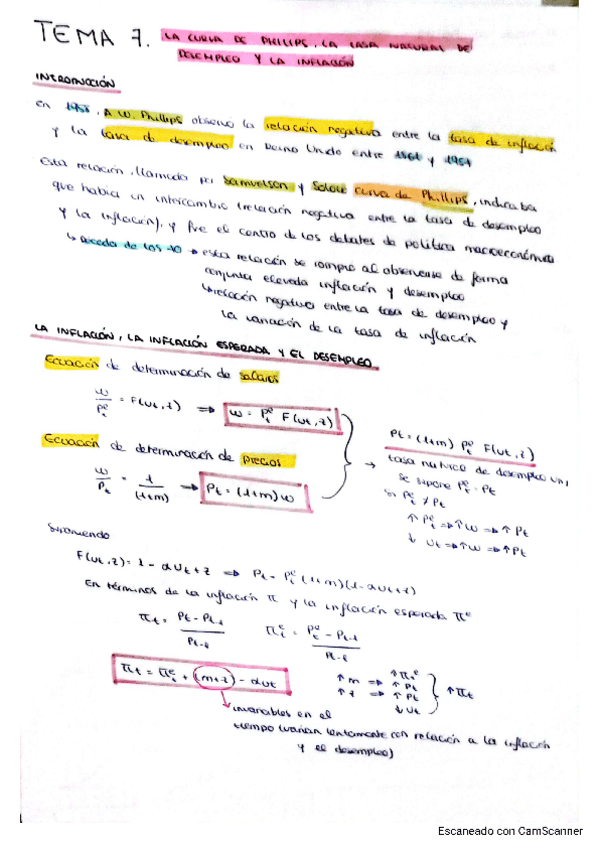 TEMA 7. LA CURVA DE PHILLIPS, LA TASA NATURAL DE
DESEMPLEO Y LA INFLACIÓN
INTRODUCCIÓN
en 1958, A W. Phillips observó la relación negativa entre la tasa de inflación
y la tasa de desempleo en Reino Unido entre 1861 y 1957
Esta relación, llamada por Samuelson y Solow curva de Phillips, indicaba
que había un intercambio (relación negativa entre la tasa de desempleo
y la inflación), y fue el centro de los debates de política macroeconómica
↳ Década de los 70 → esta relación se rompe al observarse de forma
conjunta elevada inflación y desempleo
↳ relación negativa entre la tasa de desempleo y
la variación de la tasa de inflación
LA INFLACIÓN, LA INFLACIÓN ESPERADA Y EL DESEMPLEO
Ecuación de determinación de salarios
w/P^e_t = F(ut, z) ⇒ w = P^e_t F(ut, z)
Ecuación de determinación de precios
w/Pt = 1/(1+m) → Pt = (1+m) w
Pt = (1+m) P^e_t F(ut, z)
→ tasa natural de desempleo un,
se supone P^e_t = Pt
si P^e_t ≠ Pt
↑ P^e_t ⇒ ↑ w ⇒ ↑ Pt
↓ ut ⇒ ↑ w ⇒ ↑ Pt
Suponiendo
F(ut, z) = 1 - αut + z ⇒ Pt = P^e_t (1+m)(1 - αut + z)
En términos de la inflación π y la inflación esperada π^e
πt = (Pt - Pt-1)/Pt-1 π^e_t = (P^e_t - Pt-1)/Pt-1
πt = π^e_t + (m+z) - αut
↑ m ⇒ ↑ π^e_t
↑ Pt
↑ z ⇒ ↑ Pt
↓ ut
} ↑ πt
↳ invariables en el
tiempo (varían lentamente con relación a la inflación
y el desempleo)
Escaneado con CamScanner